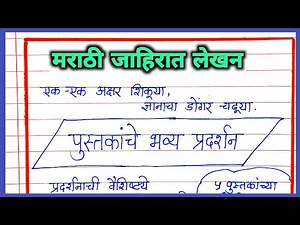 मराठी जाहिरात लेखन
एक-एक अक्षर शिकूया,
ज्ञानाचा डोंगर चढूया.
पुस्तकांचे भव्य प्रदर्शन
प्रदर्शनाची वैशिष्टये
५ पुस्तकांच्या